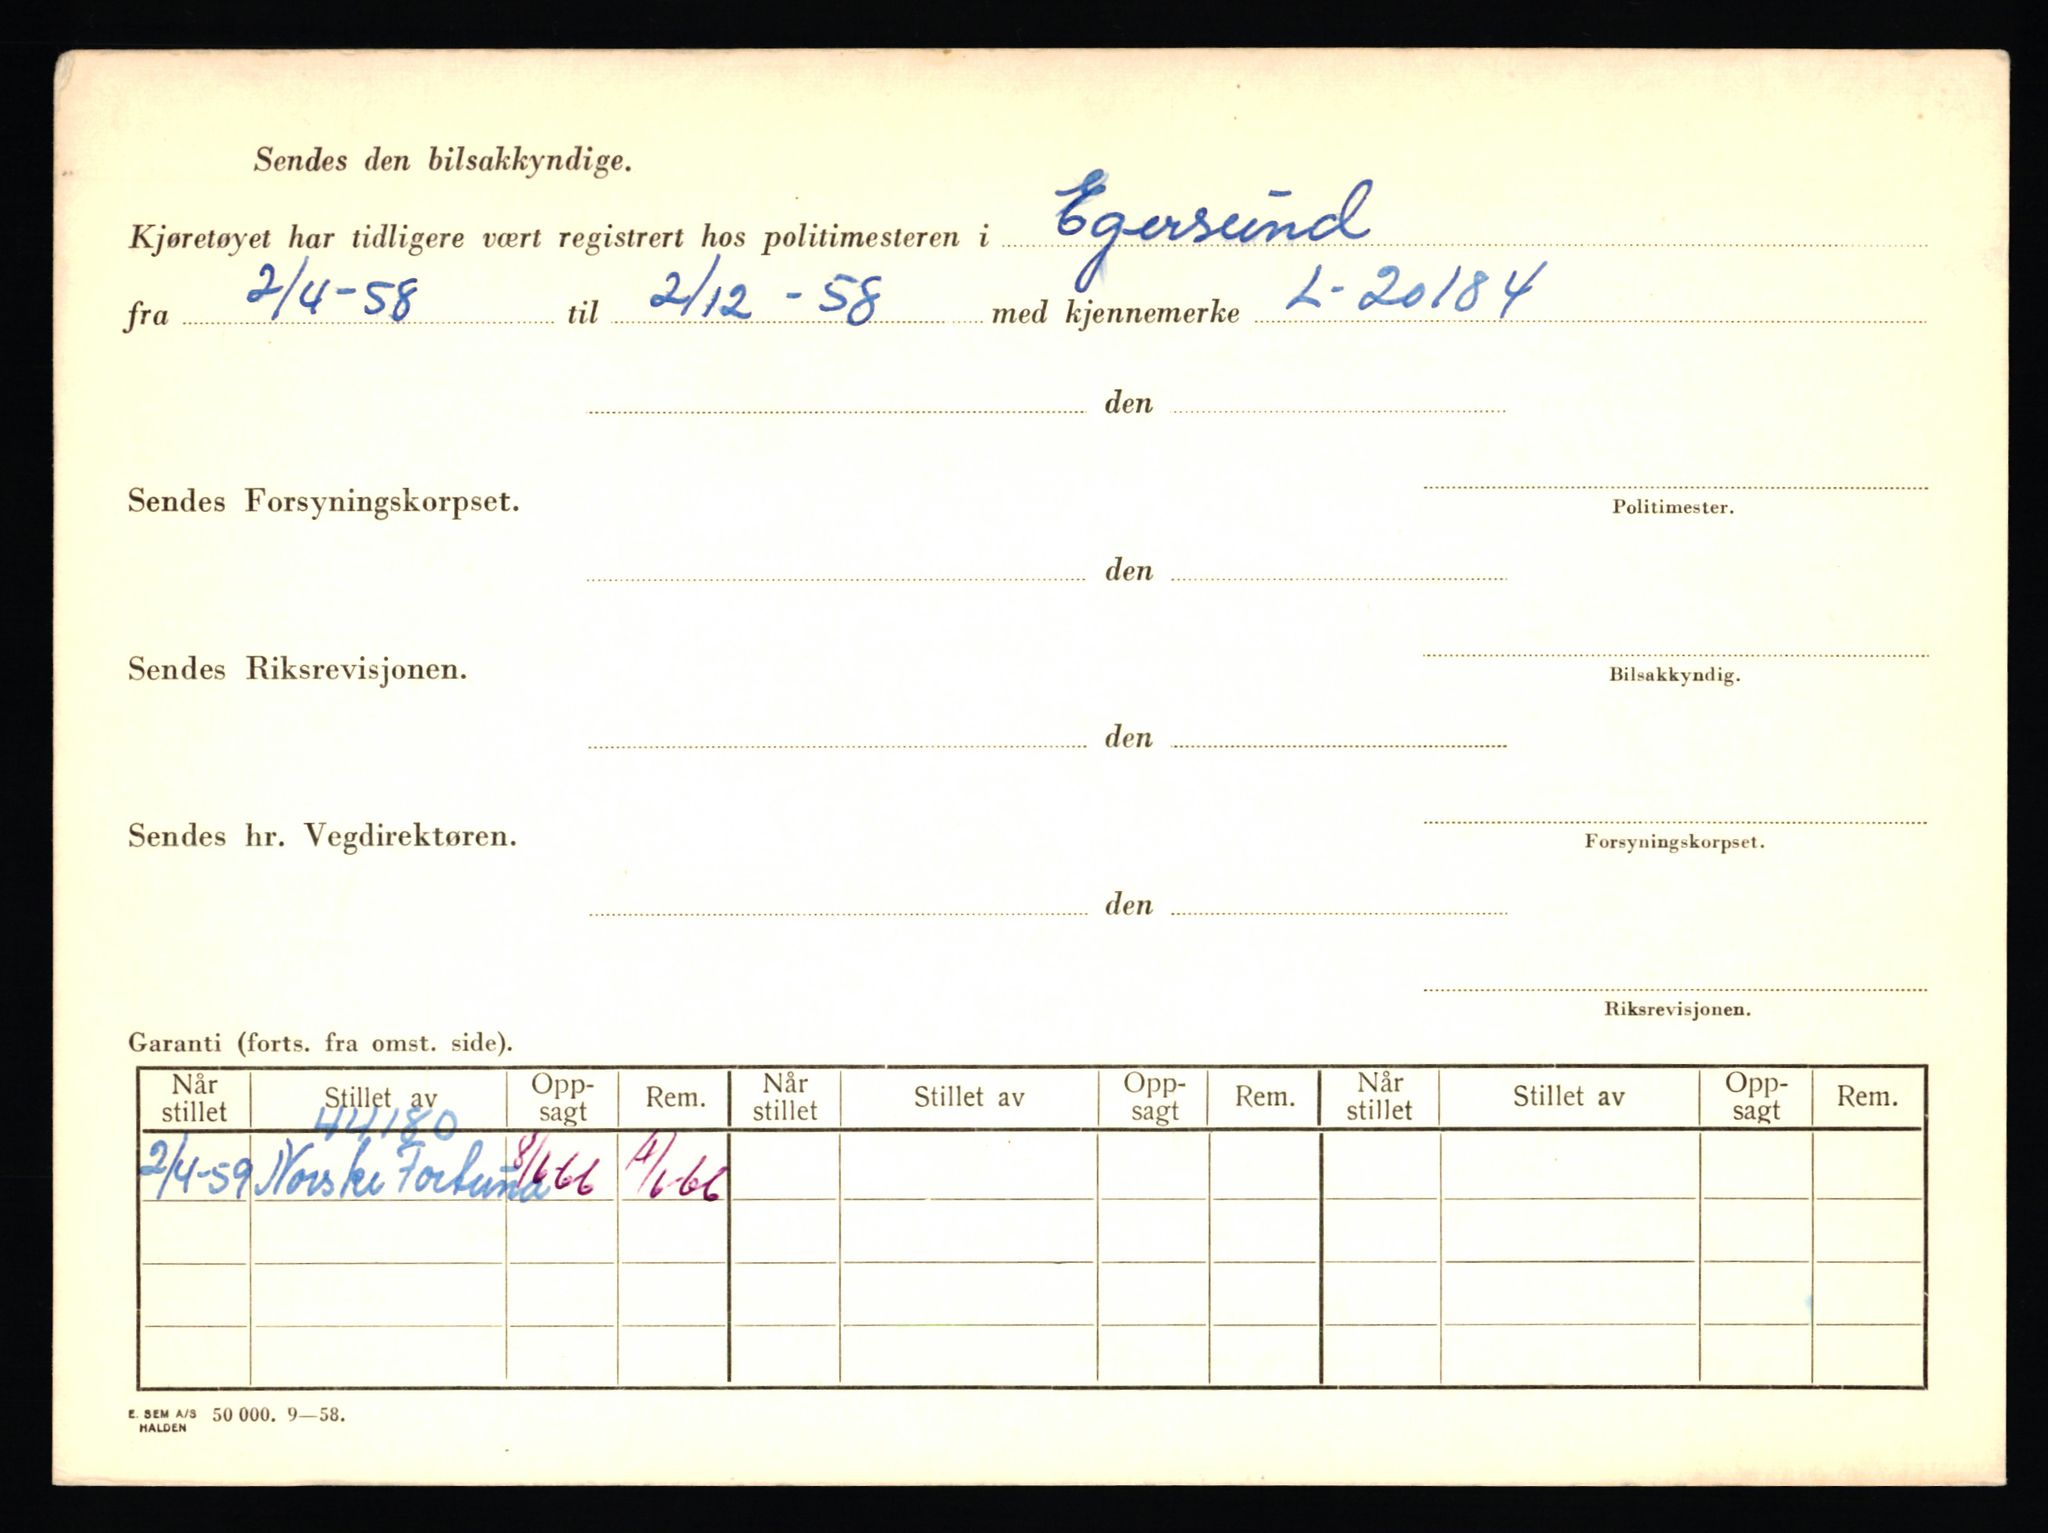 Sendes den bilsakkyndige.
Kjøretøyet har tidligere vært registrert hos politimesteren i Egersund
fra 2/4-58 til 2/12-58 med kjennemerke L-20184
den
Sendes Forsyningskorpset.
Politimester.
den
Sendes Riksrevisjonen.
Bilsakkyndig.
den
Sendes hr. Vegdirektøren.
Forsyningskorpset.
den
Riksrevisjonen.
Garanti (forts. fra omst. side).
Når stillet Stillet av Opp-sagt Rem. Når stillet Stillet av Opp-sagt Rem. Når stillet Stillet av Opp-sagt Rem.
44180
2/4-59 Norske Fortuna 8/6-66
E. SEM A/S 50 000. 9—58.
HALDEN